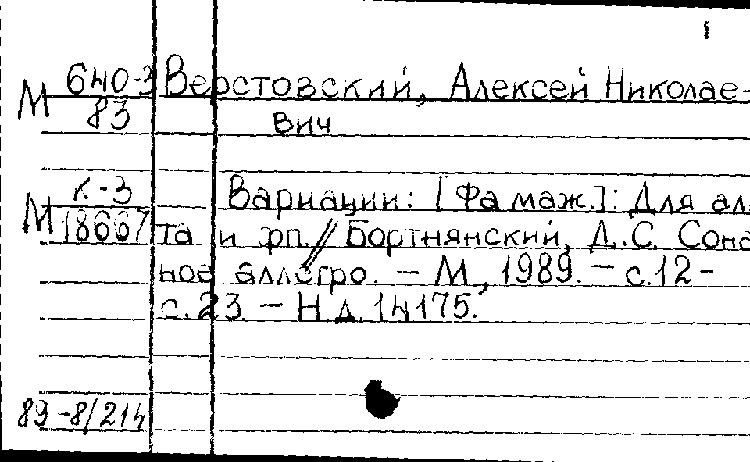 1
М 640-3 Верстовский, Алексей Николае-
83 вич
К-3 Вариации: [Фа маж.]: Для аль
М 18667 та и фп. // Бортнянский, Д.С. Сона
ное аллегро. – М, 1989. – с.12-
с.23. – Н.д. 14175.
89-8/214